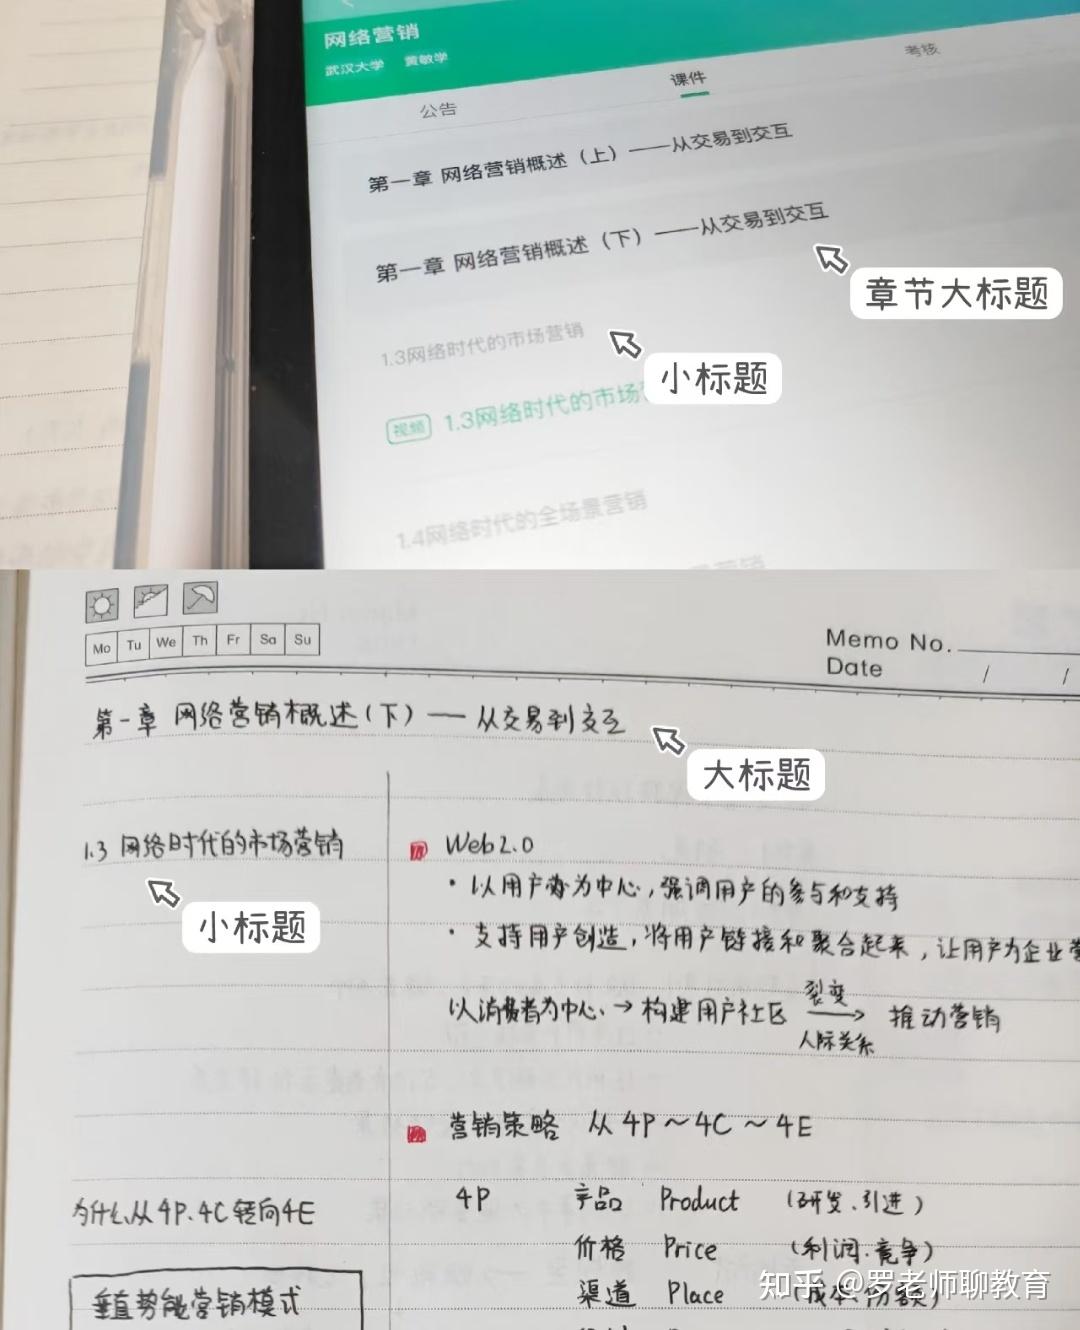 网络营销
武汉大学 黄敏学
公告 课件 考核
第一章 网络营销概述（上）——从交易到交互
第一章 网络营销概述（下）——从交易到交互
章节大标题
1.3网络时代的市场营销
小标题
视频 1.3网络时代的市场
1.4网络时代的全场景营销
Mo Tu We Th Fr Sa Su
Memo No.
Date / /
第一章 网络营销概述(下) — 从交易到交互
大标题
1.3 网络时代的市场营销
小标题
Web2.0
· 以用户为中心,强调用户的参与和支持
· 支持用户创造,将用户链接和聚合起来,让用户为企业营
以消费者为中心 → 构建用户社区 裂变 → 人际关系 推动营销
营销策略 从 4P ~ 4C ~ 4E
为什么从4P.4C转向4E
4P 产品 Product (研发.引进)
价格 Price (利润.竞争)
渠道 Place (成本.份额)
垂直势能营销模式
知乎 @罗老师聊教育